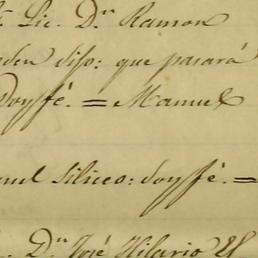 Lic. D.n Ramon
dijo: que pasará
Doy fé. = Manuel
nuel Siliceo: doy fé. =
D.n José Hilario El